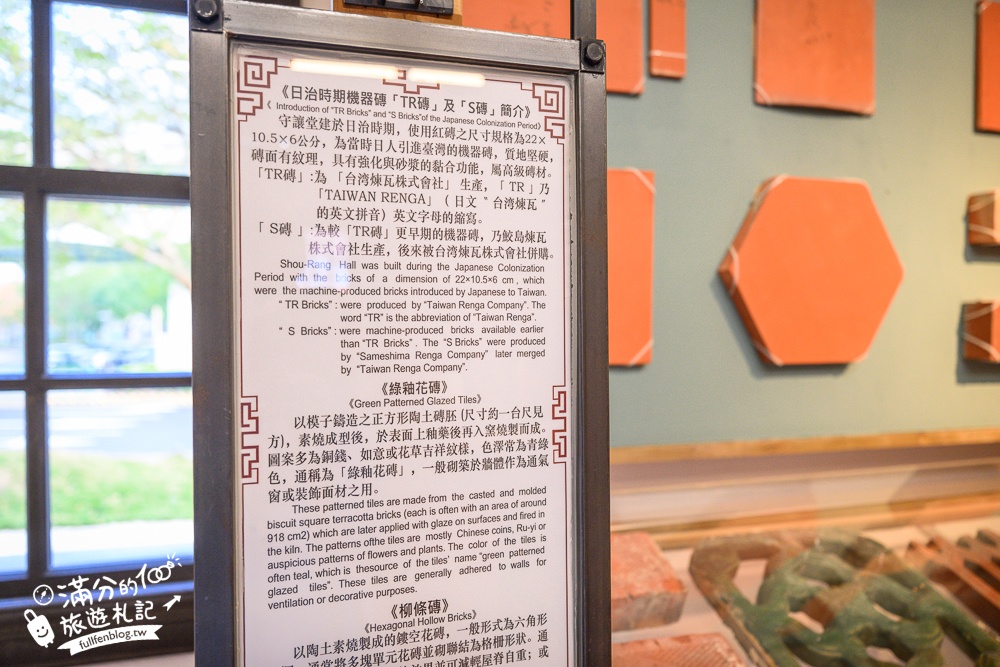 《日治時期機器磚「TR磚」及「S磚」簡介》
《 Introduction of "TR Bricks" and "S Bricks"of the Japanese Colonization Period》
守讓堂建於日治時期，使用紅磚之尺寸規格為22×
10.5×6公分，為當時日人引進臺灣的機器磚，質地堅硬，
磚面有紋理，具有強化與砂漿的黏合功能，屬高級磚材。
「TR磚」:為 「台湾煉瓦株式會社」 生產，「 TR 」乃
「TAIWAN RENGA」（ 日文〝台湾煉瓦〞
的英文拼音）英文字母的縮寫。
「 S磚 」:為較「TR磚」更早期的機器磚，乃鮫島煉瓦
株式會社生產，後來被台湾煉瓦株式會社併購。
Shou-Rang Hall was built during the Japanese Colonization
Period with the bricks of a dimension of 22×10.5×6 cm , which
were the machine-produced bricks introduced by Japanese to Taiwan.
" TR Bricks" : were produced by "Taiwan Renga Company". The
word "TR" is the abbreviation of "Taiwan Renga".
" S Bricks" : were machine-produced bricks available earlier
than "TR Bricks" . The "S Bricks" were produced
by "Sameshima Renga Company" later merged
by "Taiwan Renga Company".
《綠釉花磚》
《Green Patterned Glazed Tiles》
以模子鑄造之正方形陶土磚胚 (尺寸約一台尺見
方)，素燒成型後，於表面上釉藥後再入窯燒製而成。
圖案多為銅錢、如意或花草吉祥紋樣，色澤常為青綠
色，通稱為「綠釉花磚」，一般砌築於牆體作為通氣
窗或裝飾面材之用。
These patterned tiles are made from the casted and molded
biscuit square terracotta bricks (each is often with an area of around
918 cm2) which are later applied with glaze on surfaces and fired in
the kiln. The patterns ofthe tiles are mostly Chinese coins, Ru-yi or
auspicious patterns of flowers and plants. The color of the tiles is
often teal, which is thesource of the tiles' name "green patterned
glazed tiles". These tiles are generally adhered to walls for
ventilation or decorative purposes.
《柳條磚》
《Hexagonal Hollow Bricks》
以陶土素燒製成的鏤空花磚，一般形式為六角形
通常將多塊單元花磚並砌聯結為格柵形狀。通
並可減輕屋脊自重；或
滿分的
旅遊札記
fullfenblog.tw